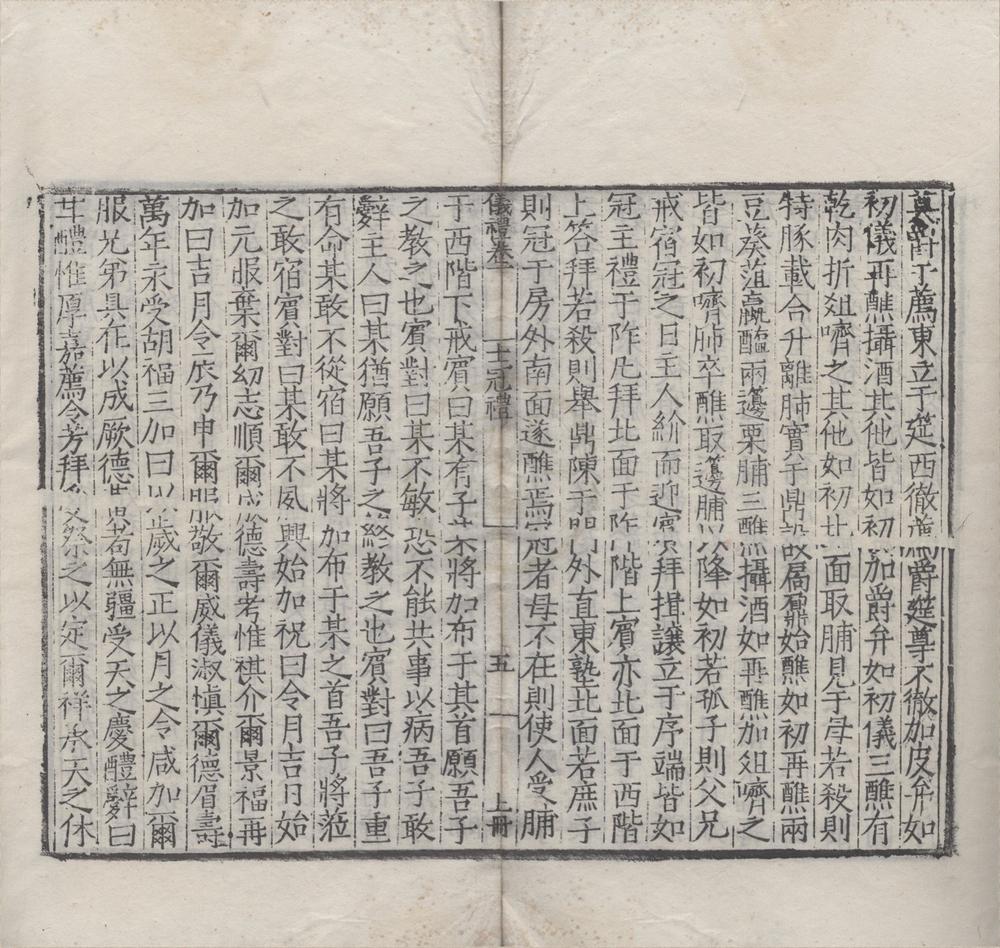 奠爵于薦東立于筵西徹薦爵筵尊不徹加皮弁如
初儀再醮攝酒其他皆如初加爵弁如初儀三醮有
乾肉折俎嚌之其他如初北面取脯見于母若殺則
特豚載合升離肺實于鼎設扃鼏始醮如初再醮兩
豆葵菹蠃醢兩籩栗脯三醮攝酒如再醮加俎嚌之
皆如初嚌肺卒醮取籩脯以降如初若孤子則父兄
戒宿冠之日主人紒而迎賓拜揖讓立于序端皆如
冠主禮于阼凡拜北面于阼階上賓亦北面于西階
上答拜若殺則舉鼎陳于門外直東塾北面若庶子
則冠于房外南面遂醮焉冠者母不在則使人受脯
儀禮卷一 士冠禮 五 上冊
于西階下戒賓曰某有子某將加布于其首願吾子
之教之也賓對曰某不敏恐不能共事以病吾子敢
辭主人曰某猶願吾子之終教之也賓對曰吾子重
有命某敢不從宿曰某將加布于某之首吾子將莅
之敢宿賓對曰某敢不夙興始加祝曰令月吉日始
加元服棄爾幼志順爾成德壽考惟祺介爾景福再
加曰吉月令辰乃申爾服敬爾威儀淑慎爾德眉壽
萬年永受胡福三加曰以歲之正以月之令咸加爾
服兄弟具在以成厥德黃耇無疆受天之慶醴辭曰
甘醴惟厚嘉薦令芳拜受祭之以定爾祥承天之休